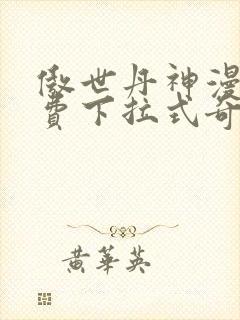 傲世丹神漫
費下拉式奇
黄華英